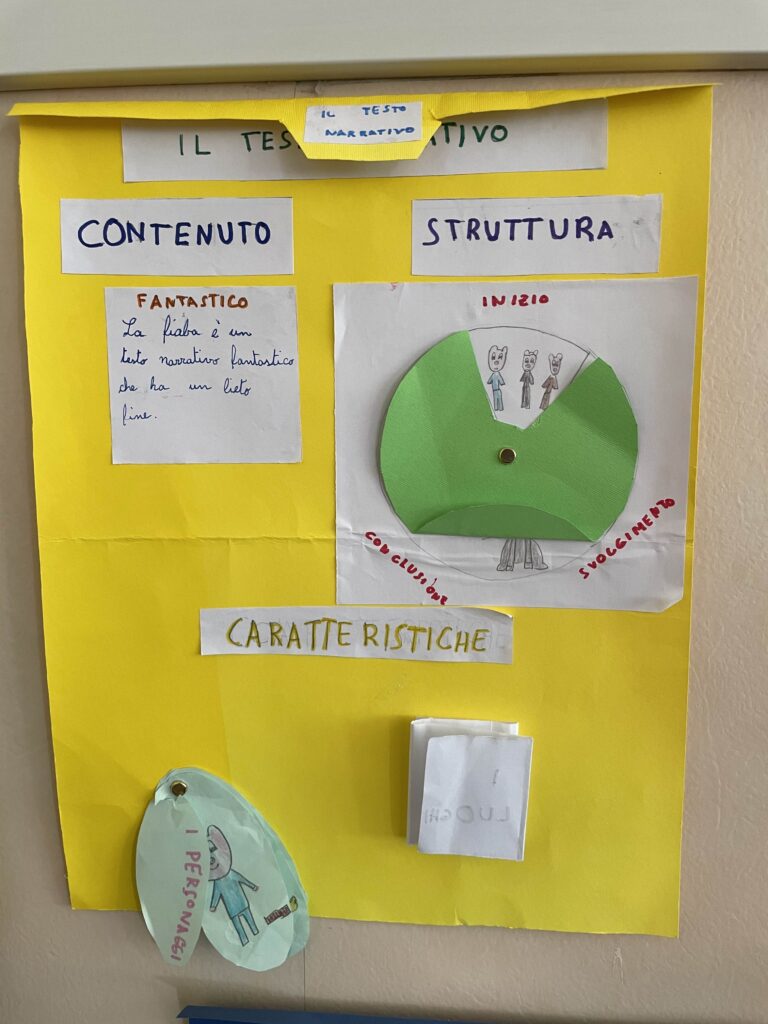 IL TESTO
NARRATIVO
IL TES ATIVO
CONTENUTO
STRUTTURA
FANTASTICO
La fiaba è un
testo narrativo fantastico
che ha un lieto
fine.
INIZIO
SVOGGIMENTO
CONCLUSIONE
CARATTERISTICHE
I
LUOGHI
I PERSONAGGI